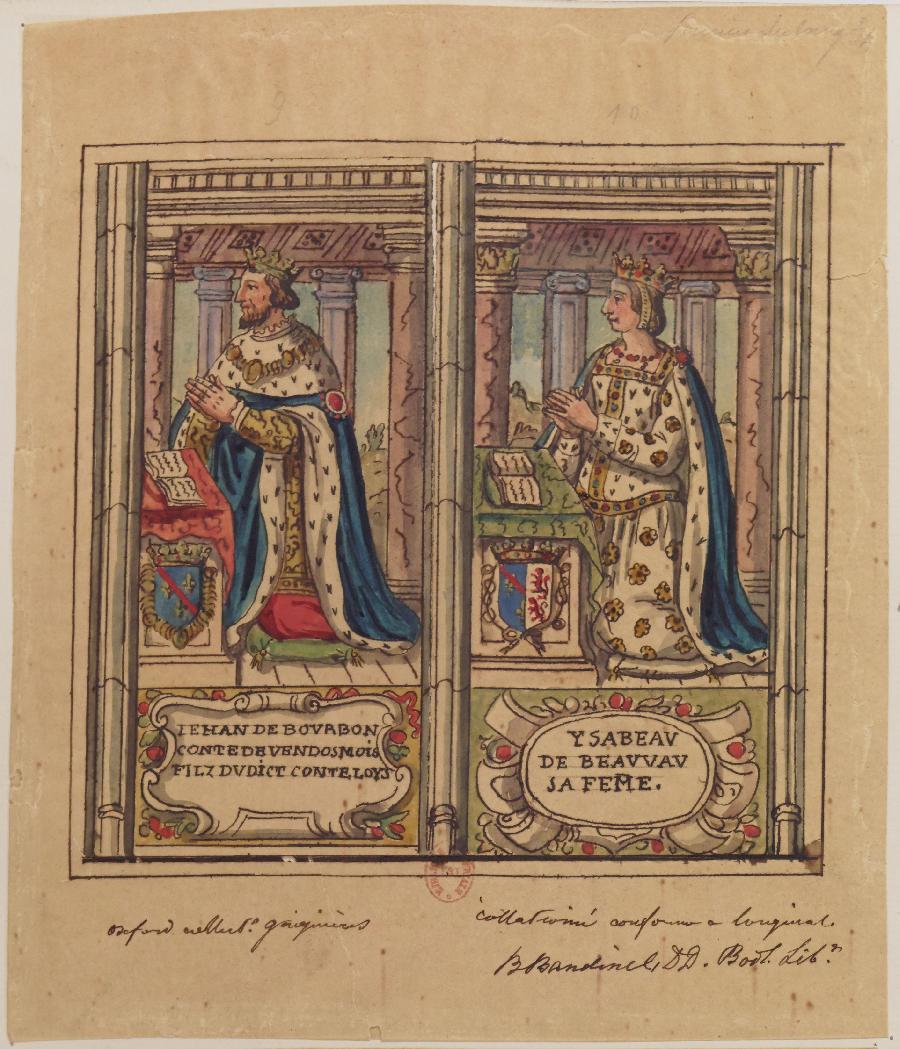 9
10
IEHAN DE BOVRBON
CONTE DE VENDOSMOIS
FILZ DVDICT CONTE LOYS
YSABEAV
DE BEAVVAV
SA FEME.
oxford collect.º gaignieres
collationné conforme a l'original.
B Bandinel, DD. Bodl. Lib.n